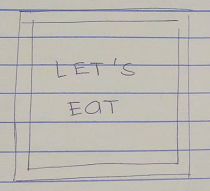 LET'S
EAT